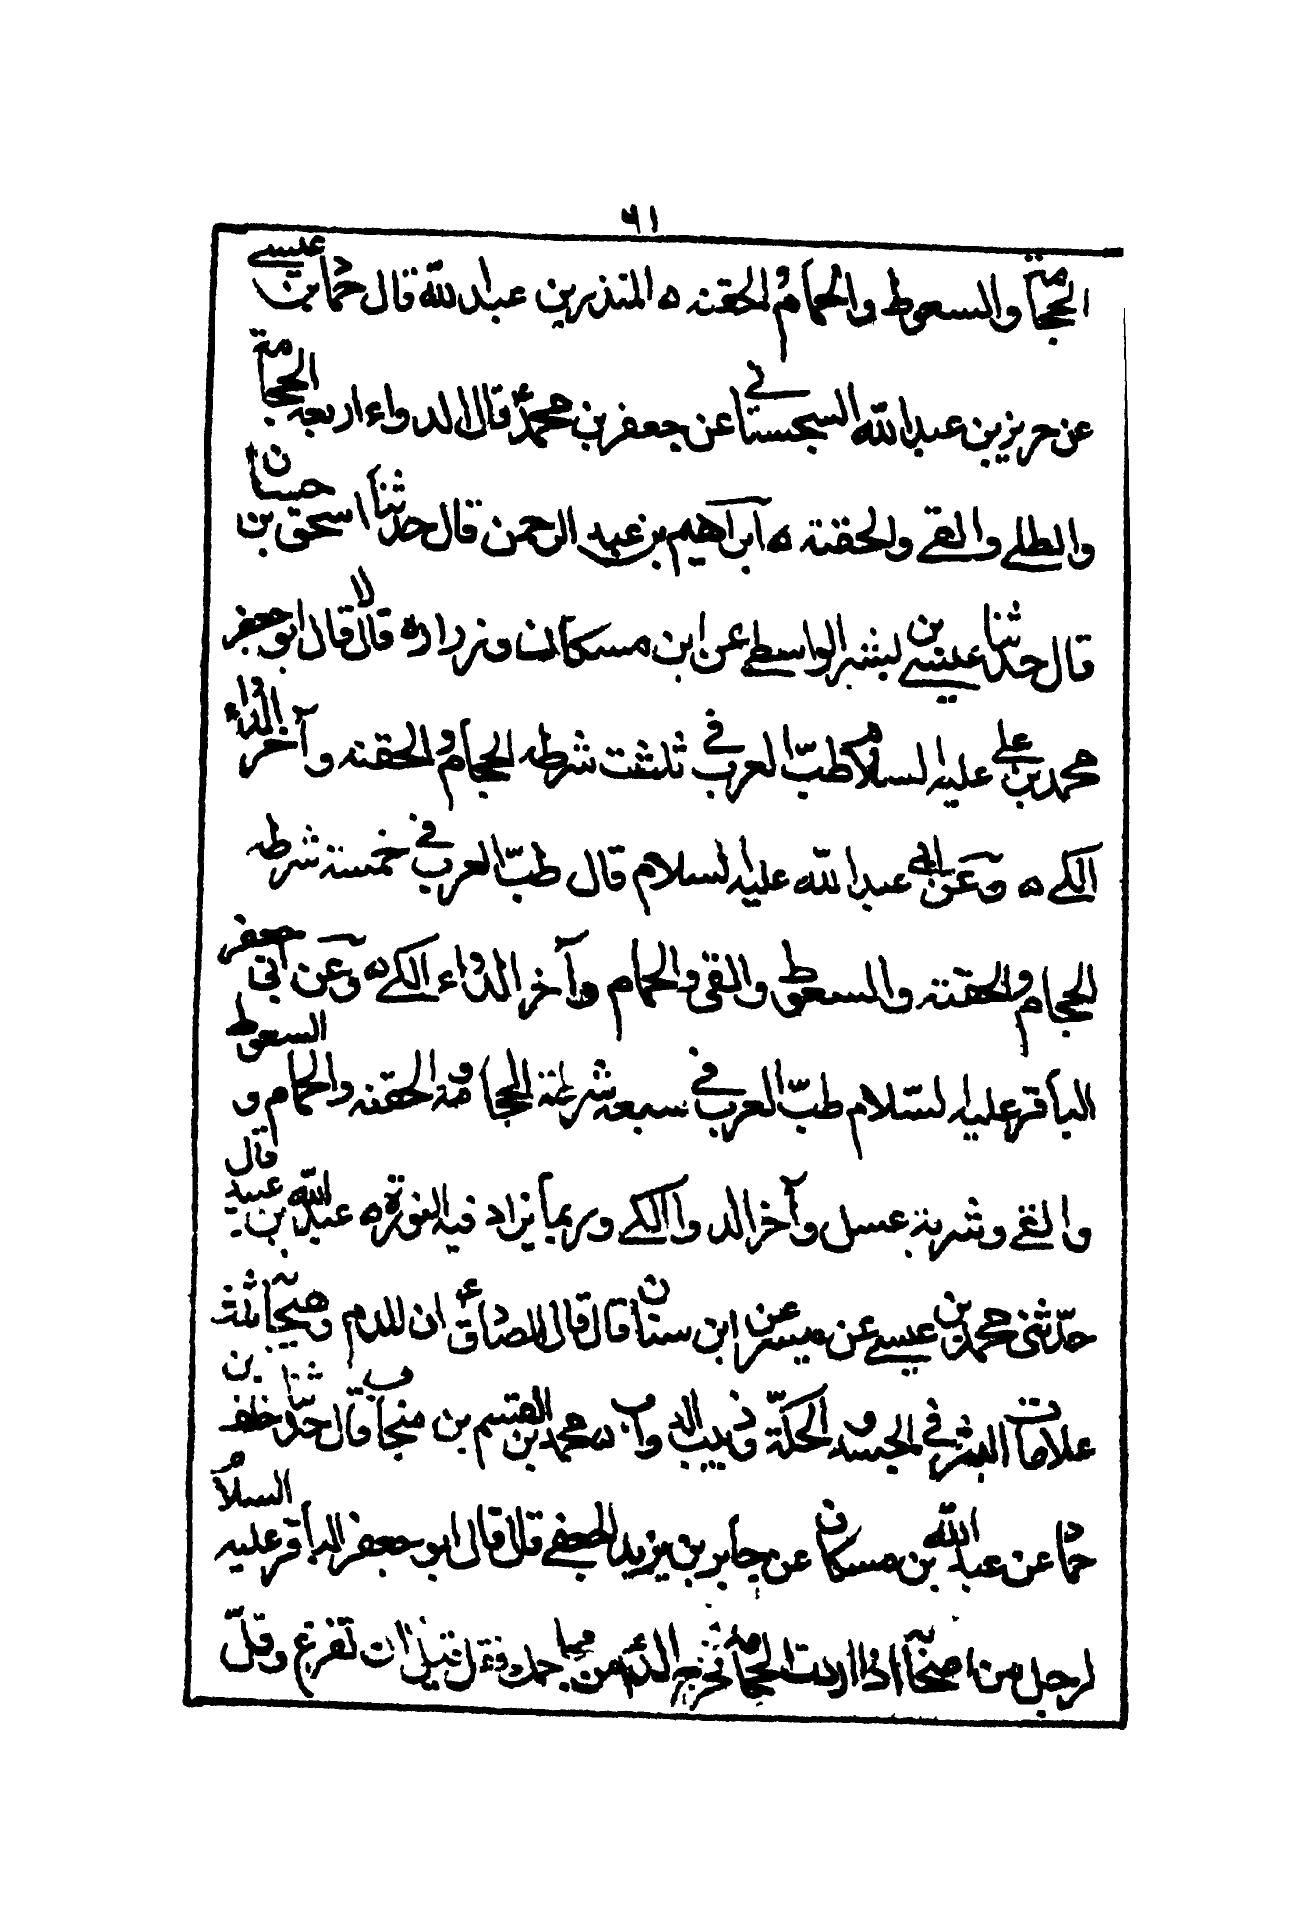 ٦١
الحجامة والسعوط والحمام والحقنه ه المنذر بن عبد الله قال حماد بن عيسى
عن حريز بن عبد الله السجستاني عن جعفر بن محمد ع قال الدواء اربعه الحجامة
والطلي والقي والحقنة ه ابراهيم بن عبد الرحمن قال حدثنا اسحق بن حسان
قال حدثنا عيسى بن بشر الواسطي عن ابن مسكان وزراره قالا قال ابو جعفر
محمد بن علي عليه السلام طبّ العرب في ثلثت شرطه الحجام والحقنه وآخر الدواء
الكي ه وعن ابي عبد الله عليه السلام قال طبّ العرب في خمسة شرطه
الحجام والحقنة والسعوط والقي والحمام وآخر الدواء الكي ه وعن ابي جعفر
الباقر عليه السّلام طبّ العرب في سبعه شرطة الحجامة والحقنه والحمام والسعوط
والقي وشربة عسل وآخر الدواء الكي وربما يزاد فيه النورة ه عبد الله بن عبيد قال
حدّثني محمد بن عيسى عن ميسر عن ابن سنان قال قال الصادق ع ان للدم وهيجانه ثلث
علامات البثر في الجسد والحكّة ودبيب الدواب ه محمد بن القسم بن منجاب قال حدّثنا خلف بن
حماد عن عبد الله بن مسكان عن جابر بن يزيد الجعفي قال قال ابو جعفر الباقر عليه السلام
لرجل من اصحابه اذا اردت الحجامة فخرج الدم من محاجمك فقل قبل ان تفرغ وقلّ